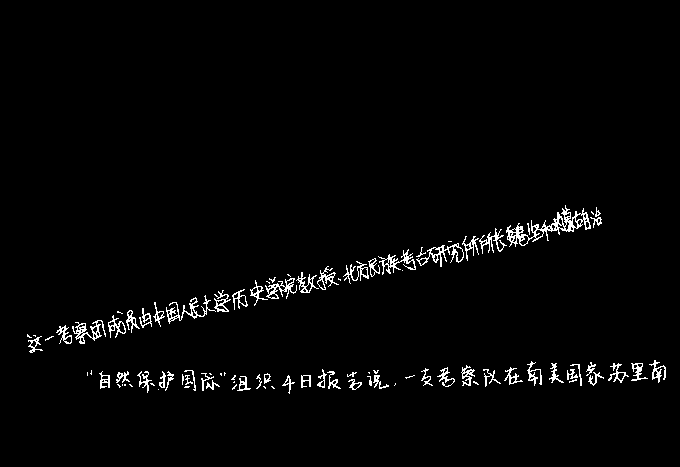 这一考察团成员由中国人民大学历史学院教授、北方民族考古研究所所长魏坚和内蒙古自治
“自然保护国际”组织4日报告说，一支考察队在南美国家苏里南